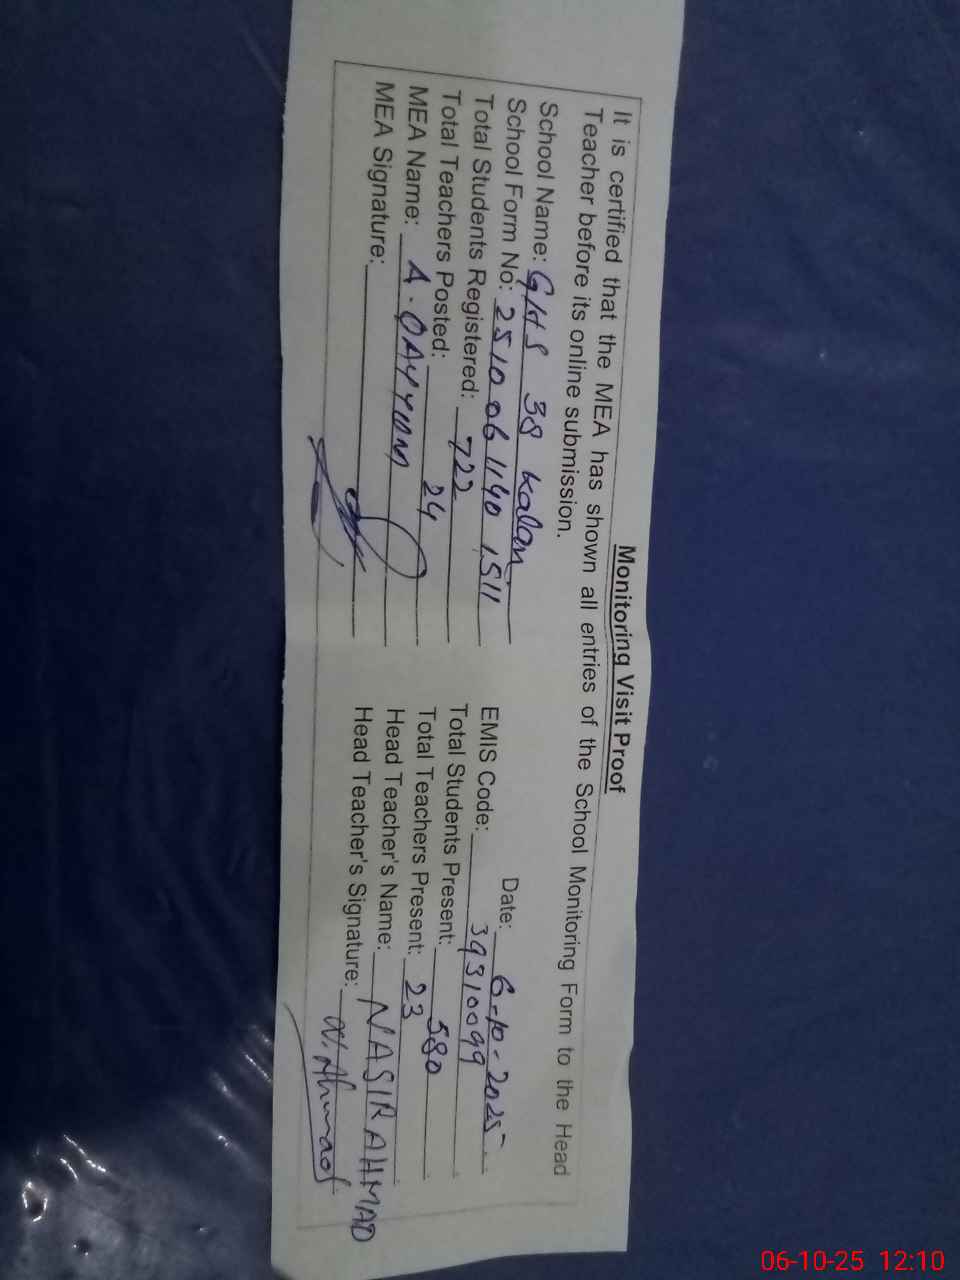 Monitoring Visit Proof
It is certified that the MEA has shown all entries of the School Monitoring Form to the Head
Teacher before its online submission.
Date: 6-10-2025
School Name: GHS 38 Kalan
School Form No: 2510061140 1511 EMIS Code: 39310099
Total Students Registered: 722 Total Students Present: 580
Total Teachers Posted: 24 Total Teachers Present: 23
MEA Name: A. QAYYUM Head Teacher's Name: NASIR AHMAD
MEA Signature: Head Teacher's Signature: N. Ahmad
06-10-25 12:10